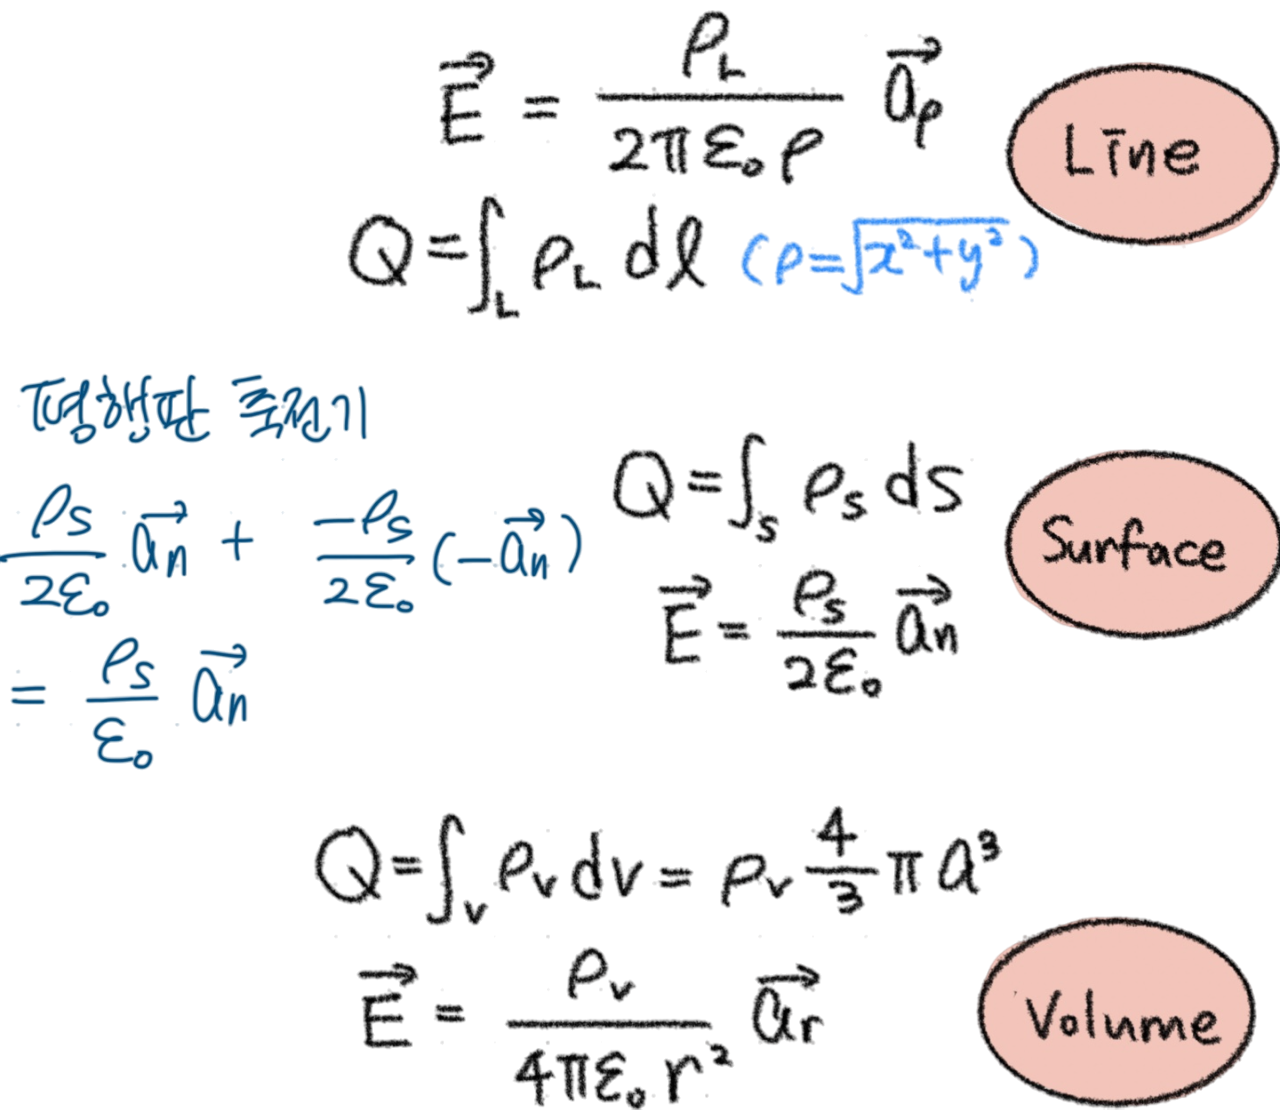 E⃗ = ρ_L / (2πε₀ρ) a⃗_ρ
Line
Q = ∫_L ρ_L dℓ (ρ = √(x² + y²))
평행판 축전기
Q = ∫_S ρ_S dS
ρ_S / (2ε₀) a⃗_n + -ρ_S / (2ε₀) (-a⃗_n)
Surface
E⃗ = ρ_S / (2ε₀) a⃗_n
= ρ_S / ε₀ a⃗_n
Q = ∫_v ρ_v dv = ρ_v 4/3 π a³
E⃗ = ρ_v / (4πε₀r²) a⃗_r
Volume